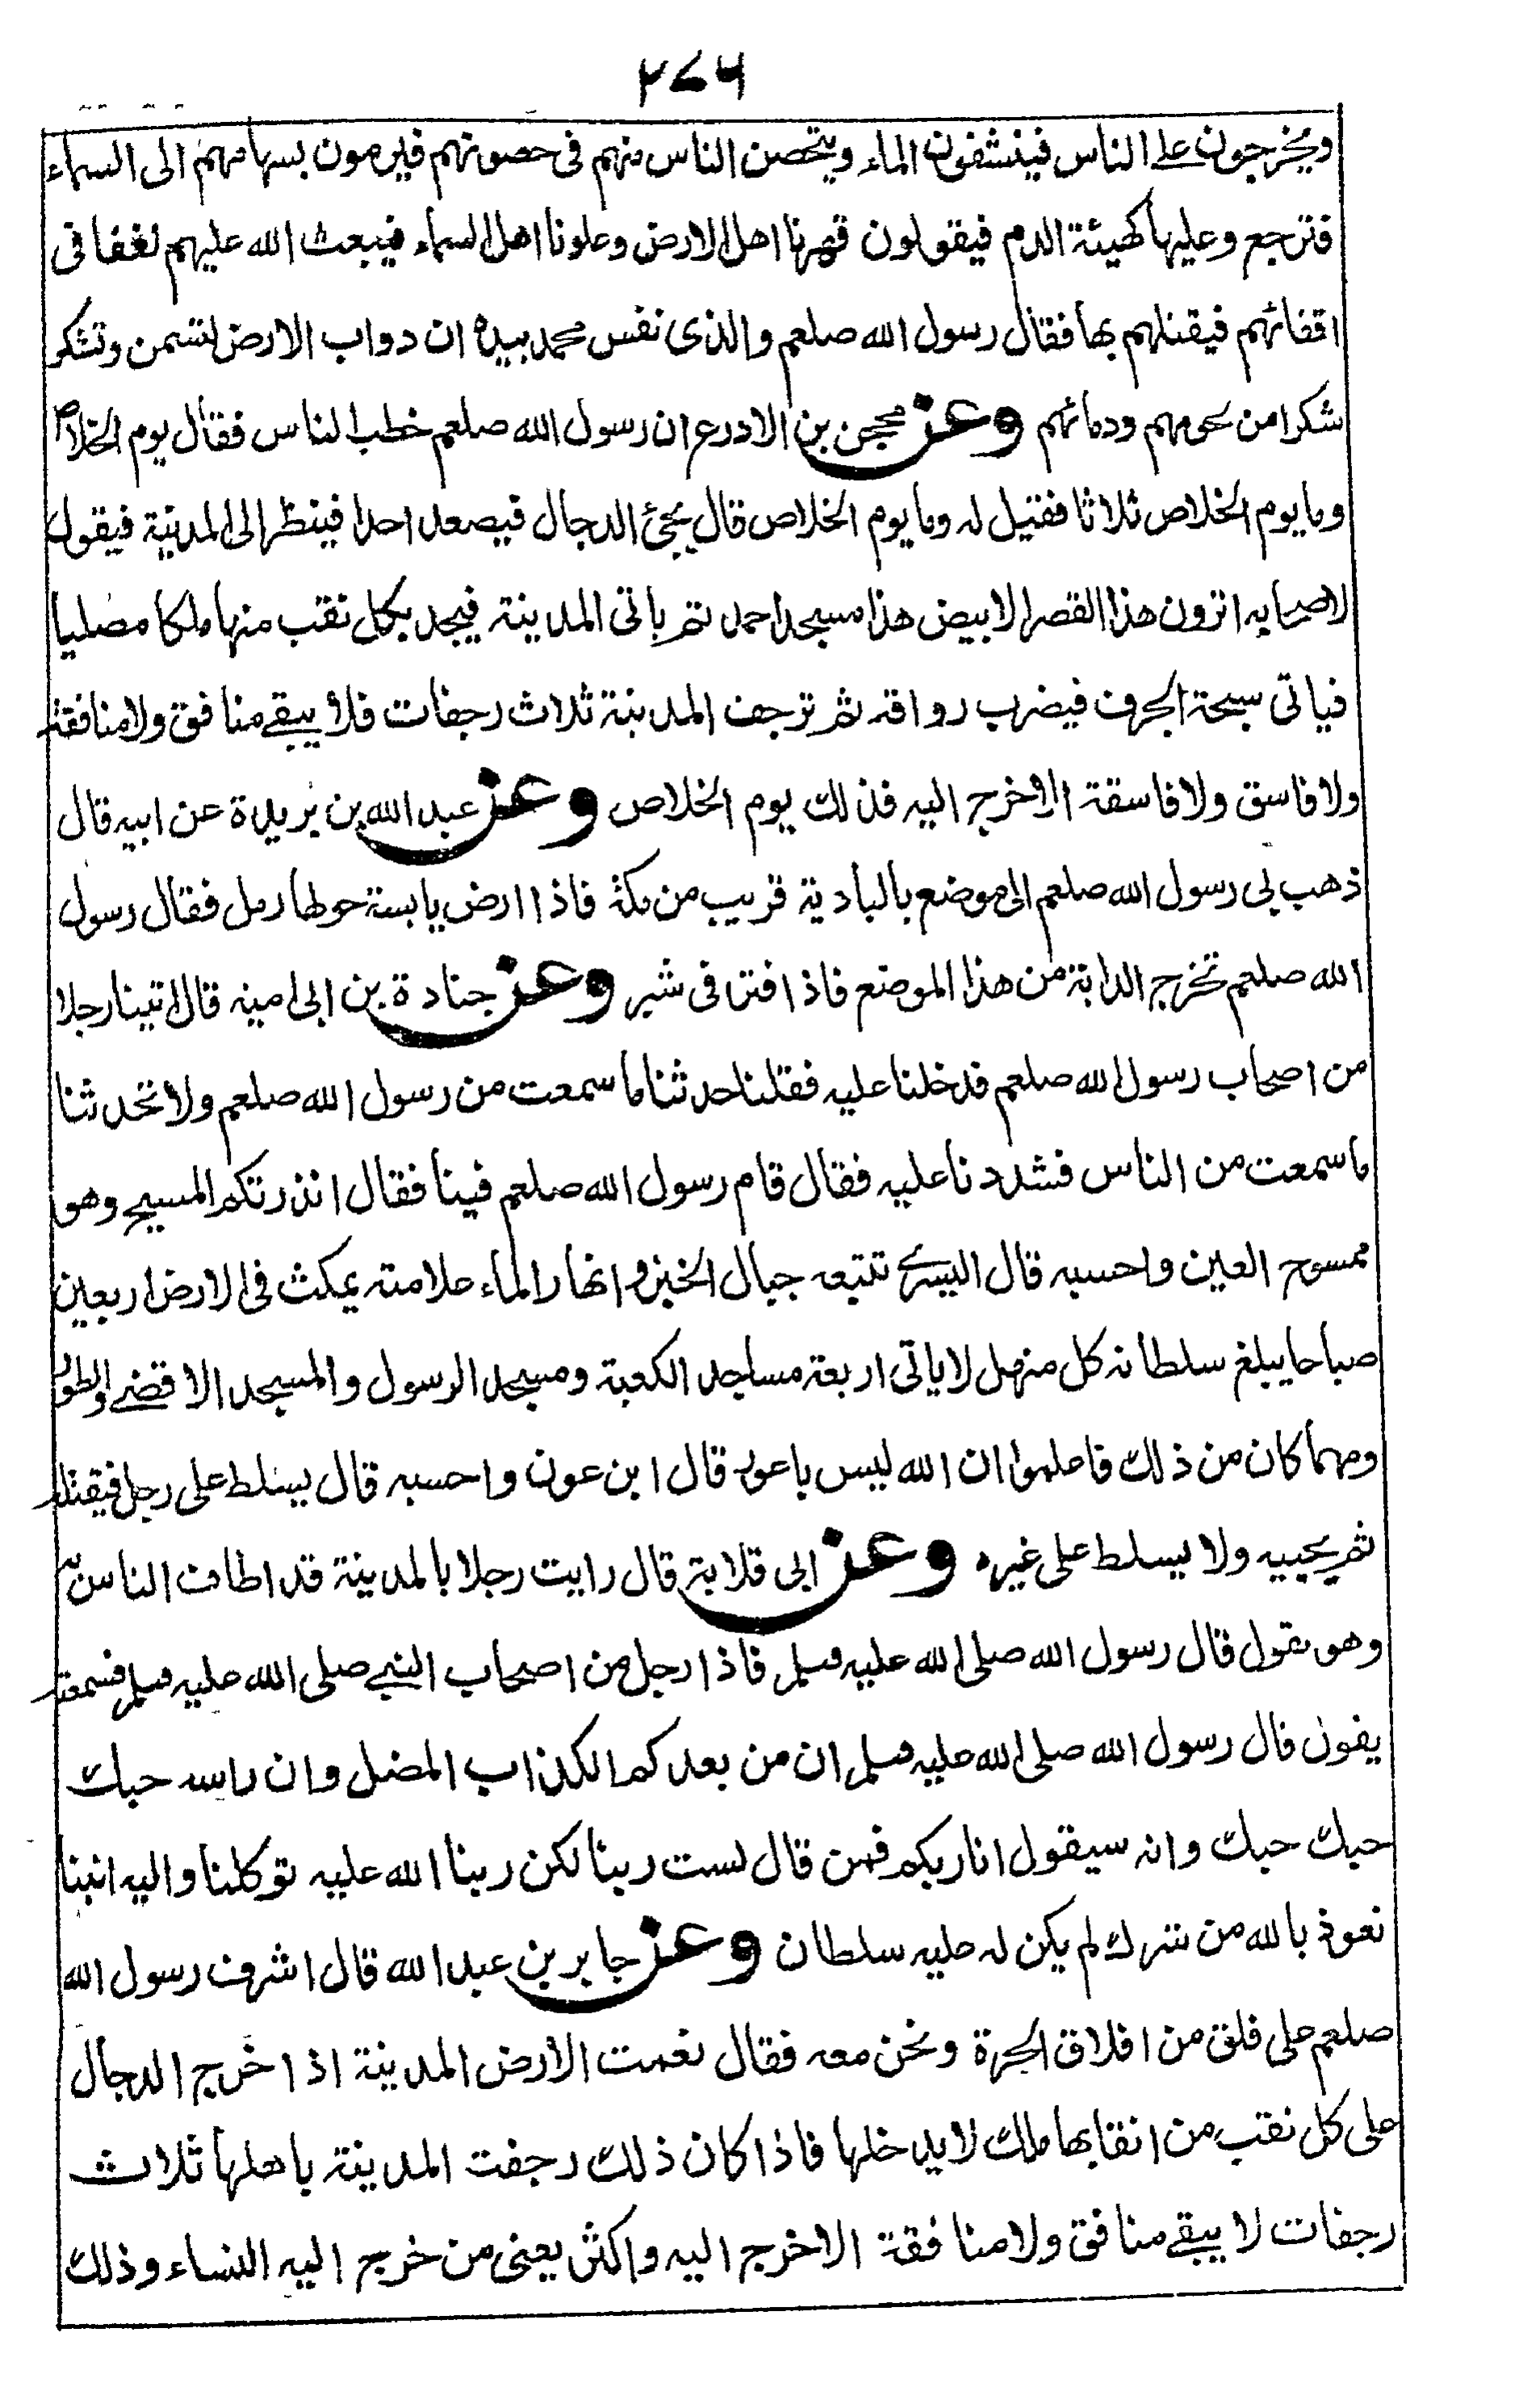 ٢٧٦
ويخرجون على الناس فينشفون الماء ويتحصن الناس منهم فى حصونهم فيرمون بسهامهم الى السماء
فترجع وعليها كهيئة الدم فيقولون قهرنا اهل الارض وعلونا اهل السماء فيبعث الله عليهم نغفا فى
اقفائهم فيقتلهم بها فقال رسول الله صلعم والذى نفس محمد بيده ان دواب الارض لتسمن وتشكر
شكرا من لحومهم ودمائهم وعن محجن بن الادرع ان رسول الله صلعم خطب الناس فقال يوم الخلاص
وما يوم الخلاص ثلاثا فقيل له وما يوم الخلاص قال يجئ الدجال فيصعد احدا فينظر الى المدينة فيقول
لاصحابه اترون هذا القصر الابيض هذا مسجد احمد ثم ياتى المدينة فيجد بكل نقب منها ملكا مصليا
فياتى سبحة الجرف فيضرب رواقه ثم ترجف المدينة ثلاث رجفات فلا يبقے منافق ولا منافقة
ولا فاسق ولا فاسقة الا خرج اليه فذلك يوم الخلاص وعن عبد الله بن بريدة عن ابيه قال
ذهب بى رسول الله صلعم الى موضع بالبادية قريب من مكة فاذا ارض يابسة حولها رمل فقال رسول
الله صلعم تخرج الدابة من هذا الموضع فاذا فتر فى شبر وعن جنادة بن ابى امية قال اتينا رجلا
من اصحاب رسول الله صلعم فدخلنا عليه فقلنا حدثنا ما سمعت من رسول الله صلعم ولا تحدثنا
ما سمعت من الناس فشددنا عليه فقال قام رسول الله صلعم فينا فقال انذرتكم المسيح وهو
ممسوح العين واحسبه قال اليسرے تتبعه جبال الخبز و انهار الماء علامته يمكث فى الارض اربعين
صباحا يبلغ سلطانه كل منهل لا ياتى اربعة مساجد الكعبة ومسجد الرسول والمسجد الاقصے والطور
ومهما كان من ذلك فاعلموا ان الله ليس باعور قال ابن عون واحسبه قال يسلط على رجل فيقتله
ثم يحييه ولا يسلط على غيره وعن ابى قلابة قال رايت رجلا بالمدينة قد اطاف الناس به
وهو يقول قال رسول الله صلى الله عليه وسلم فاذا رجل من اصحاب النبے صلى الله عليه وسلم فسمعته
يقول قال رسول الله صلى الله عليه وسلم ان من بعدكم الكذاب المضل وان راسه حبك
حبك حبك وانه سيقول انا ربكم فمن قال لست ربنا لكن ربنا الله عليه توكلنا واليه انبنا
نعوذ بالله من شرك لم يكن له عليه سلطان وعن جابر بن عبد الله قال اشرف رسول الله
صلعم على فلق من افلاق الحرة ونحن معه فقال نعمت الارض المدينة اذا خرج الدجال
على كل نقب من انقابها ملك لا يدخلها فاذا كان ذلك رجفت المدينة باهلها ثلاث
رجفات لا يبقے منافق ولا منافقة الا خرج اليه واكثر يعنى من خرج اليه النساء وذلك